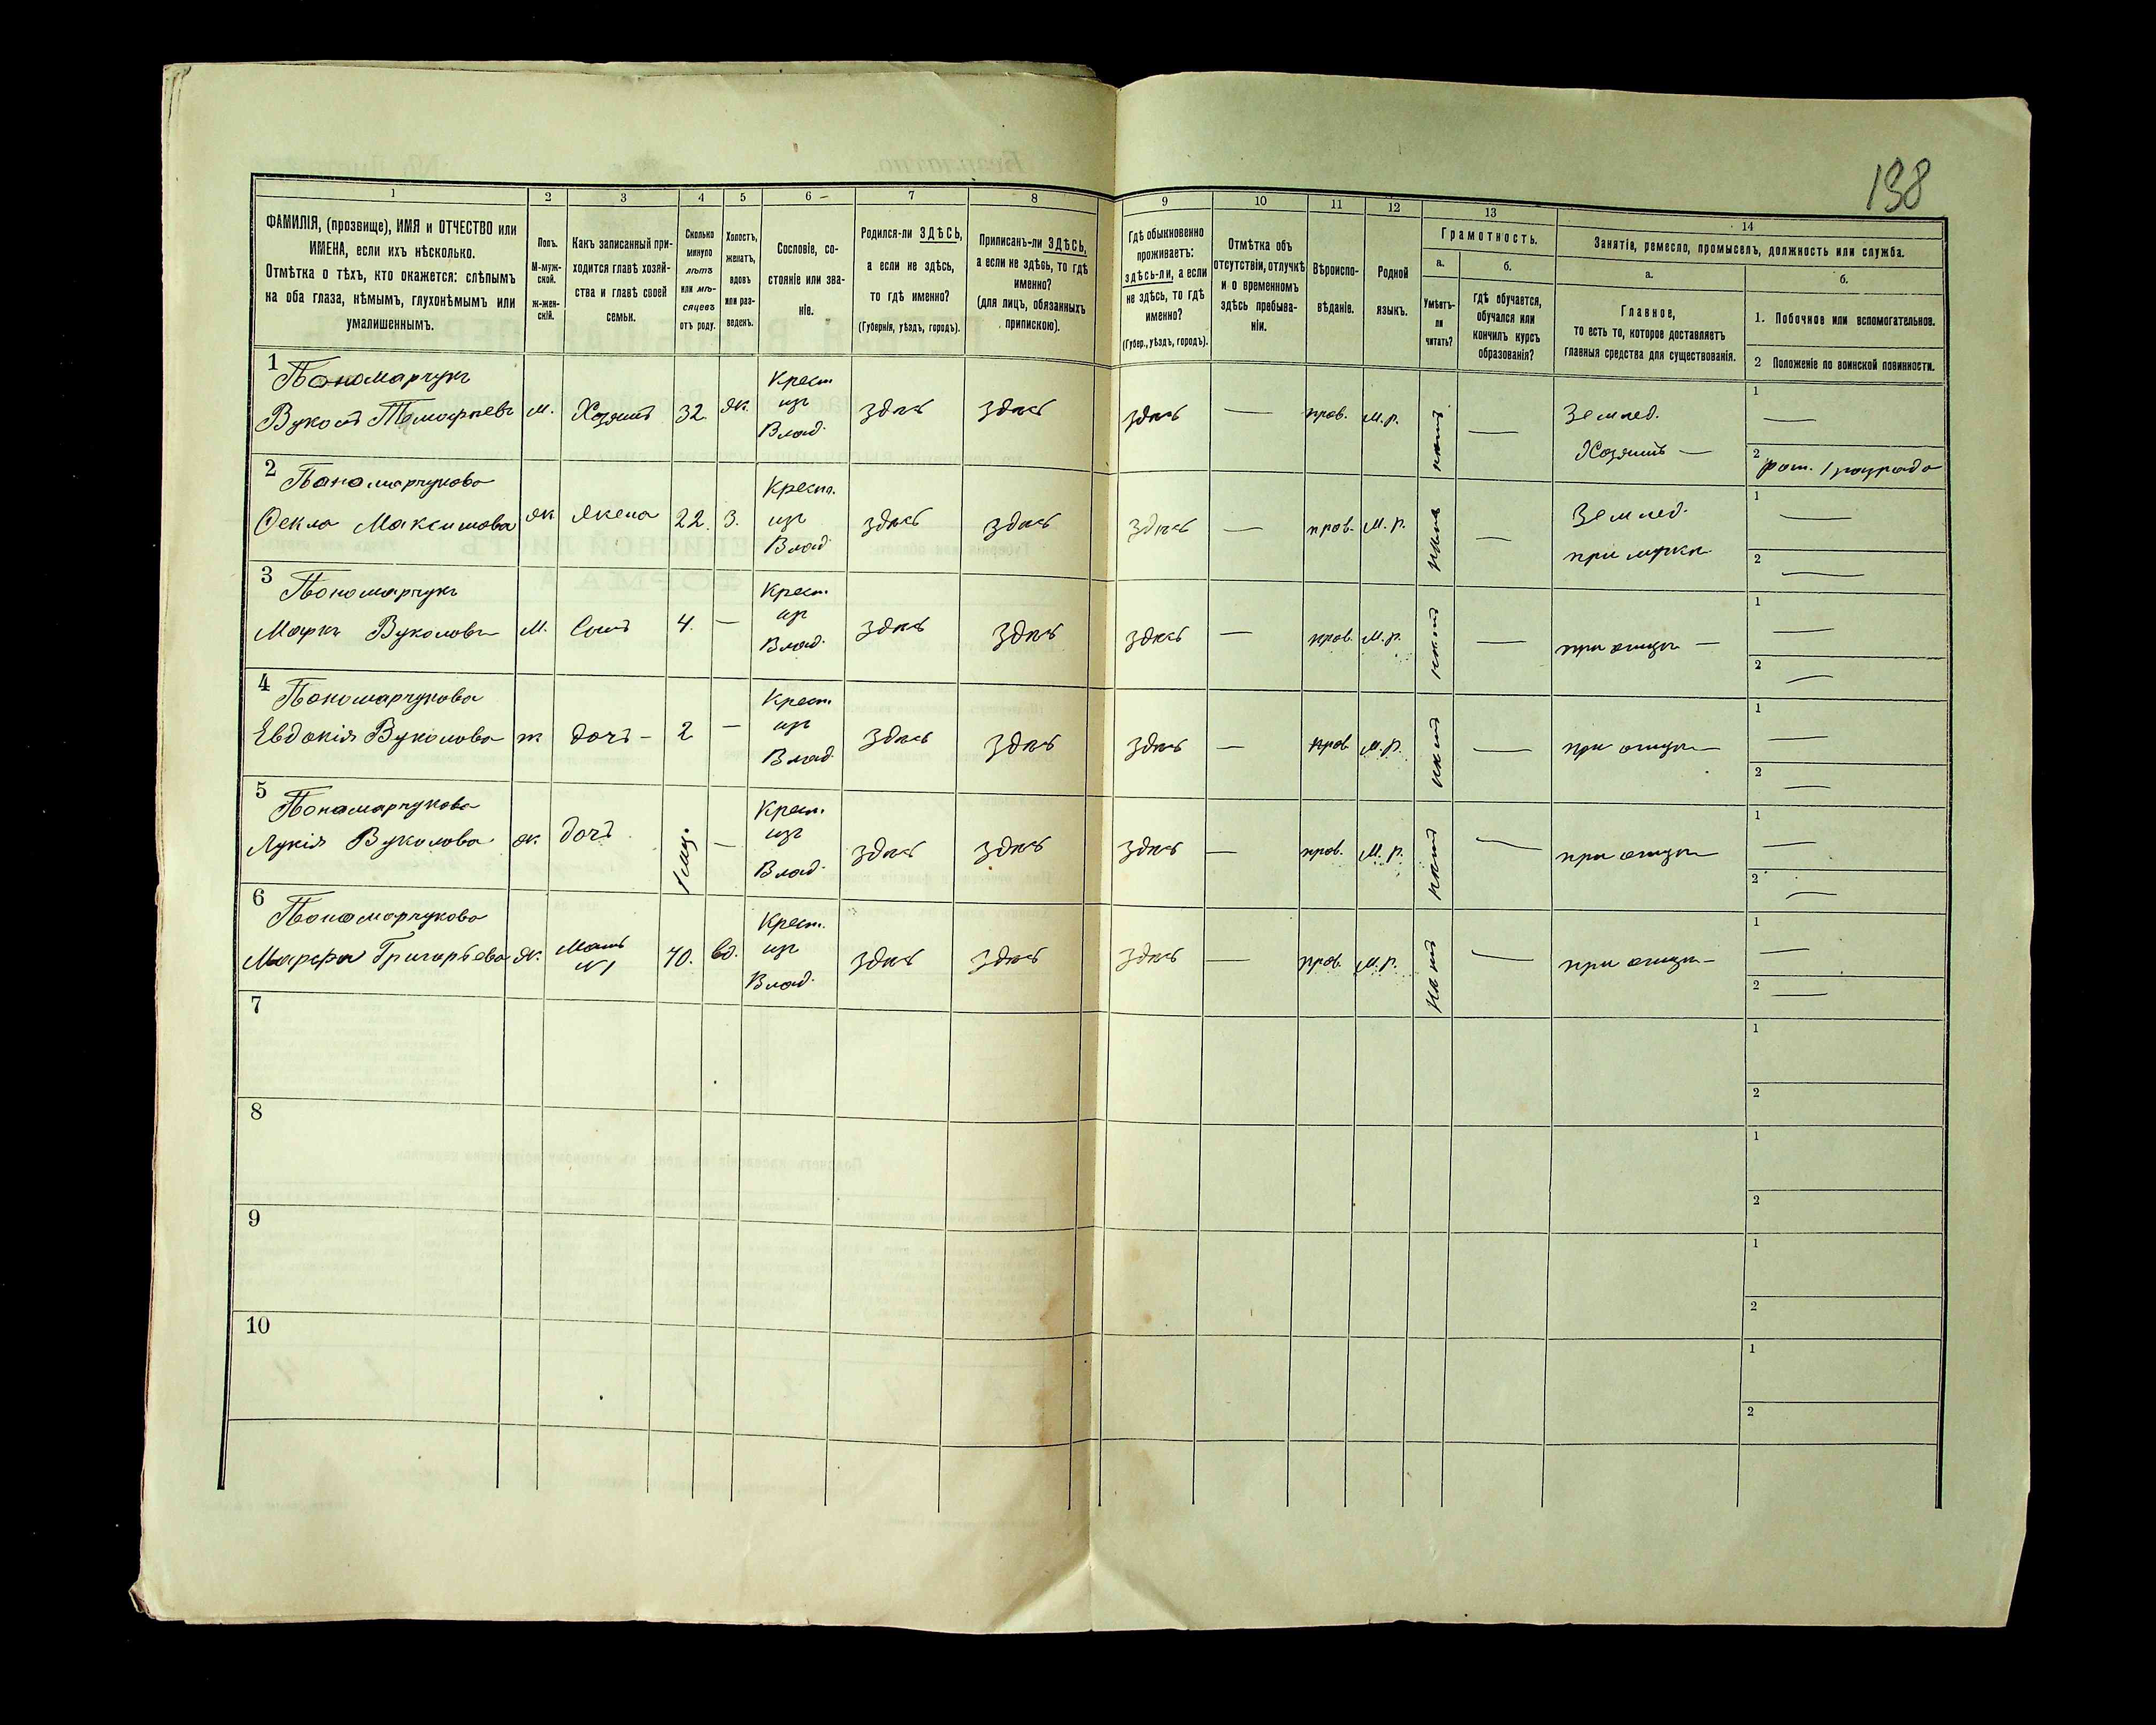 138
1 2 3 4 5 6 7 8 9 10 11 12 13 14
ФАМИЛІЯ, (прозвище), ИМЯ и ОТЧЕСТВО или
ИМЕНА, если ихъ нѣсколько.
Отмѣтка о тѣхъ, кто окажется: слѣпымъ
на оба глаза, нѣмымъ, глухонѣмымъ или
умалишеннымъ.
Полъ.
М-муж-
ской.
ж-жен-
скій.
Какъ записанный при-
ходится главѣ хозяй-
ства и главѣ своей
семьи.
Сколько
минуло
лѣтъ
или мѣ-
сяцевъ
отъ роду.
Холостъ,
женатъ,
вдовъ
или раз-
веденъ.
Сословіе, со-
стояніе или зва-
ніе.
Родился-ли ЗДѢСЬ,
а если не здѣсь,
то гдѣ именно?
(Губернія, уѣздъ, городъ).
Приписанъ-ли ЗДѢСЬ,
а если не здѣсь, то гдѣ
именно?
(для лицъ, обязанныхъ
припискою).
Гдѣ обыкновенно
проживаетъ:
здѣсь-ли, а если
не здѣсь, то гдѣ
именно?
(Губер., уѣздъ, городъ).
Отмѣтка объ
отсутствіи, отлучкѣ
и о временномъ
здѣсь пребыва-
ніи.
Вѣроиспо-
вѣданіе.
Родной
языкъ.
Грамотность.
а.
Умѣетъ-
ли
читать?
б.
гдѣ обучается,
обучался или
кончилъ курсъ
образованія?
Занятіе, ремесло, промыселъ, должность или служба.
а.
Главное,
то есть то, которое доставляетъ
главныя средства для существованія.
б.
1. Побочное или вспомогательное.
2 Положеніе по воинской повинности.
1
Пономарчукъ
Вуколъ Тимофѣевъ м. Хозяинъ 32 ж. Крест. изъ Влад. здѣсь здѣсь здѣсь — прав. М.р. нѣтъ — Землед. Хозяинъ — 1 — 2 рат. 1 разряда
2
Пономарчукова
Фекла Максимова ж Жена 22. З. Крест. изъ Влад. здѣсь здѣсь здѣсь — прав. М.р. нѣтъ — Землед. при мужѣ 1 — 2 —
3
Пономарчукъ
Маркъ Вуколовъ М. Сынъ 4. — Крест. изъ Влад. здѣсь здѣсь здѣсь — прав. М.р. нѣтъ — при отцѣ — 1 — 2 —
4
Пономарчукова
Евдокія Вуколова ж дочь — 2 — Крест. изъ Влад. здѣсь здѣсь здѣсь — прав М.р. нѣтъ — при отцѣ — 1 — 2 —
5
Пономарчукова
Лукія Вуколова ж. дочь — Крест. изъ Влад. здѣсь здѣсь здѣсь — прав. М.р. нѣтъ — при отцѣ — 1 — 2 —
6
Пономарчукова
Марфа Григорьева ж. Мать №1 70. вд. Крест. изъ Влад. здѣсь здѣсь здѣсь — прав. М.р. нѣтъ — при отцѣ — 1 — 2 —
7 1 2
8 1 2
9 1 2
10 1 2